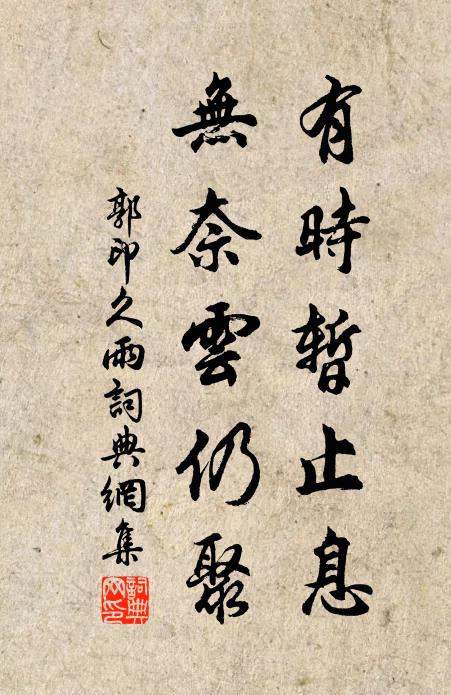 有時暫止息
無奈雲仍聚
郭印久雨詞典網集
詞典網印